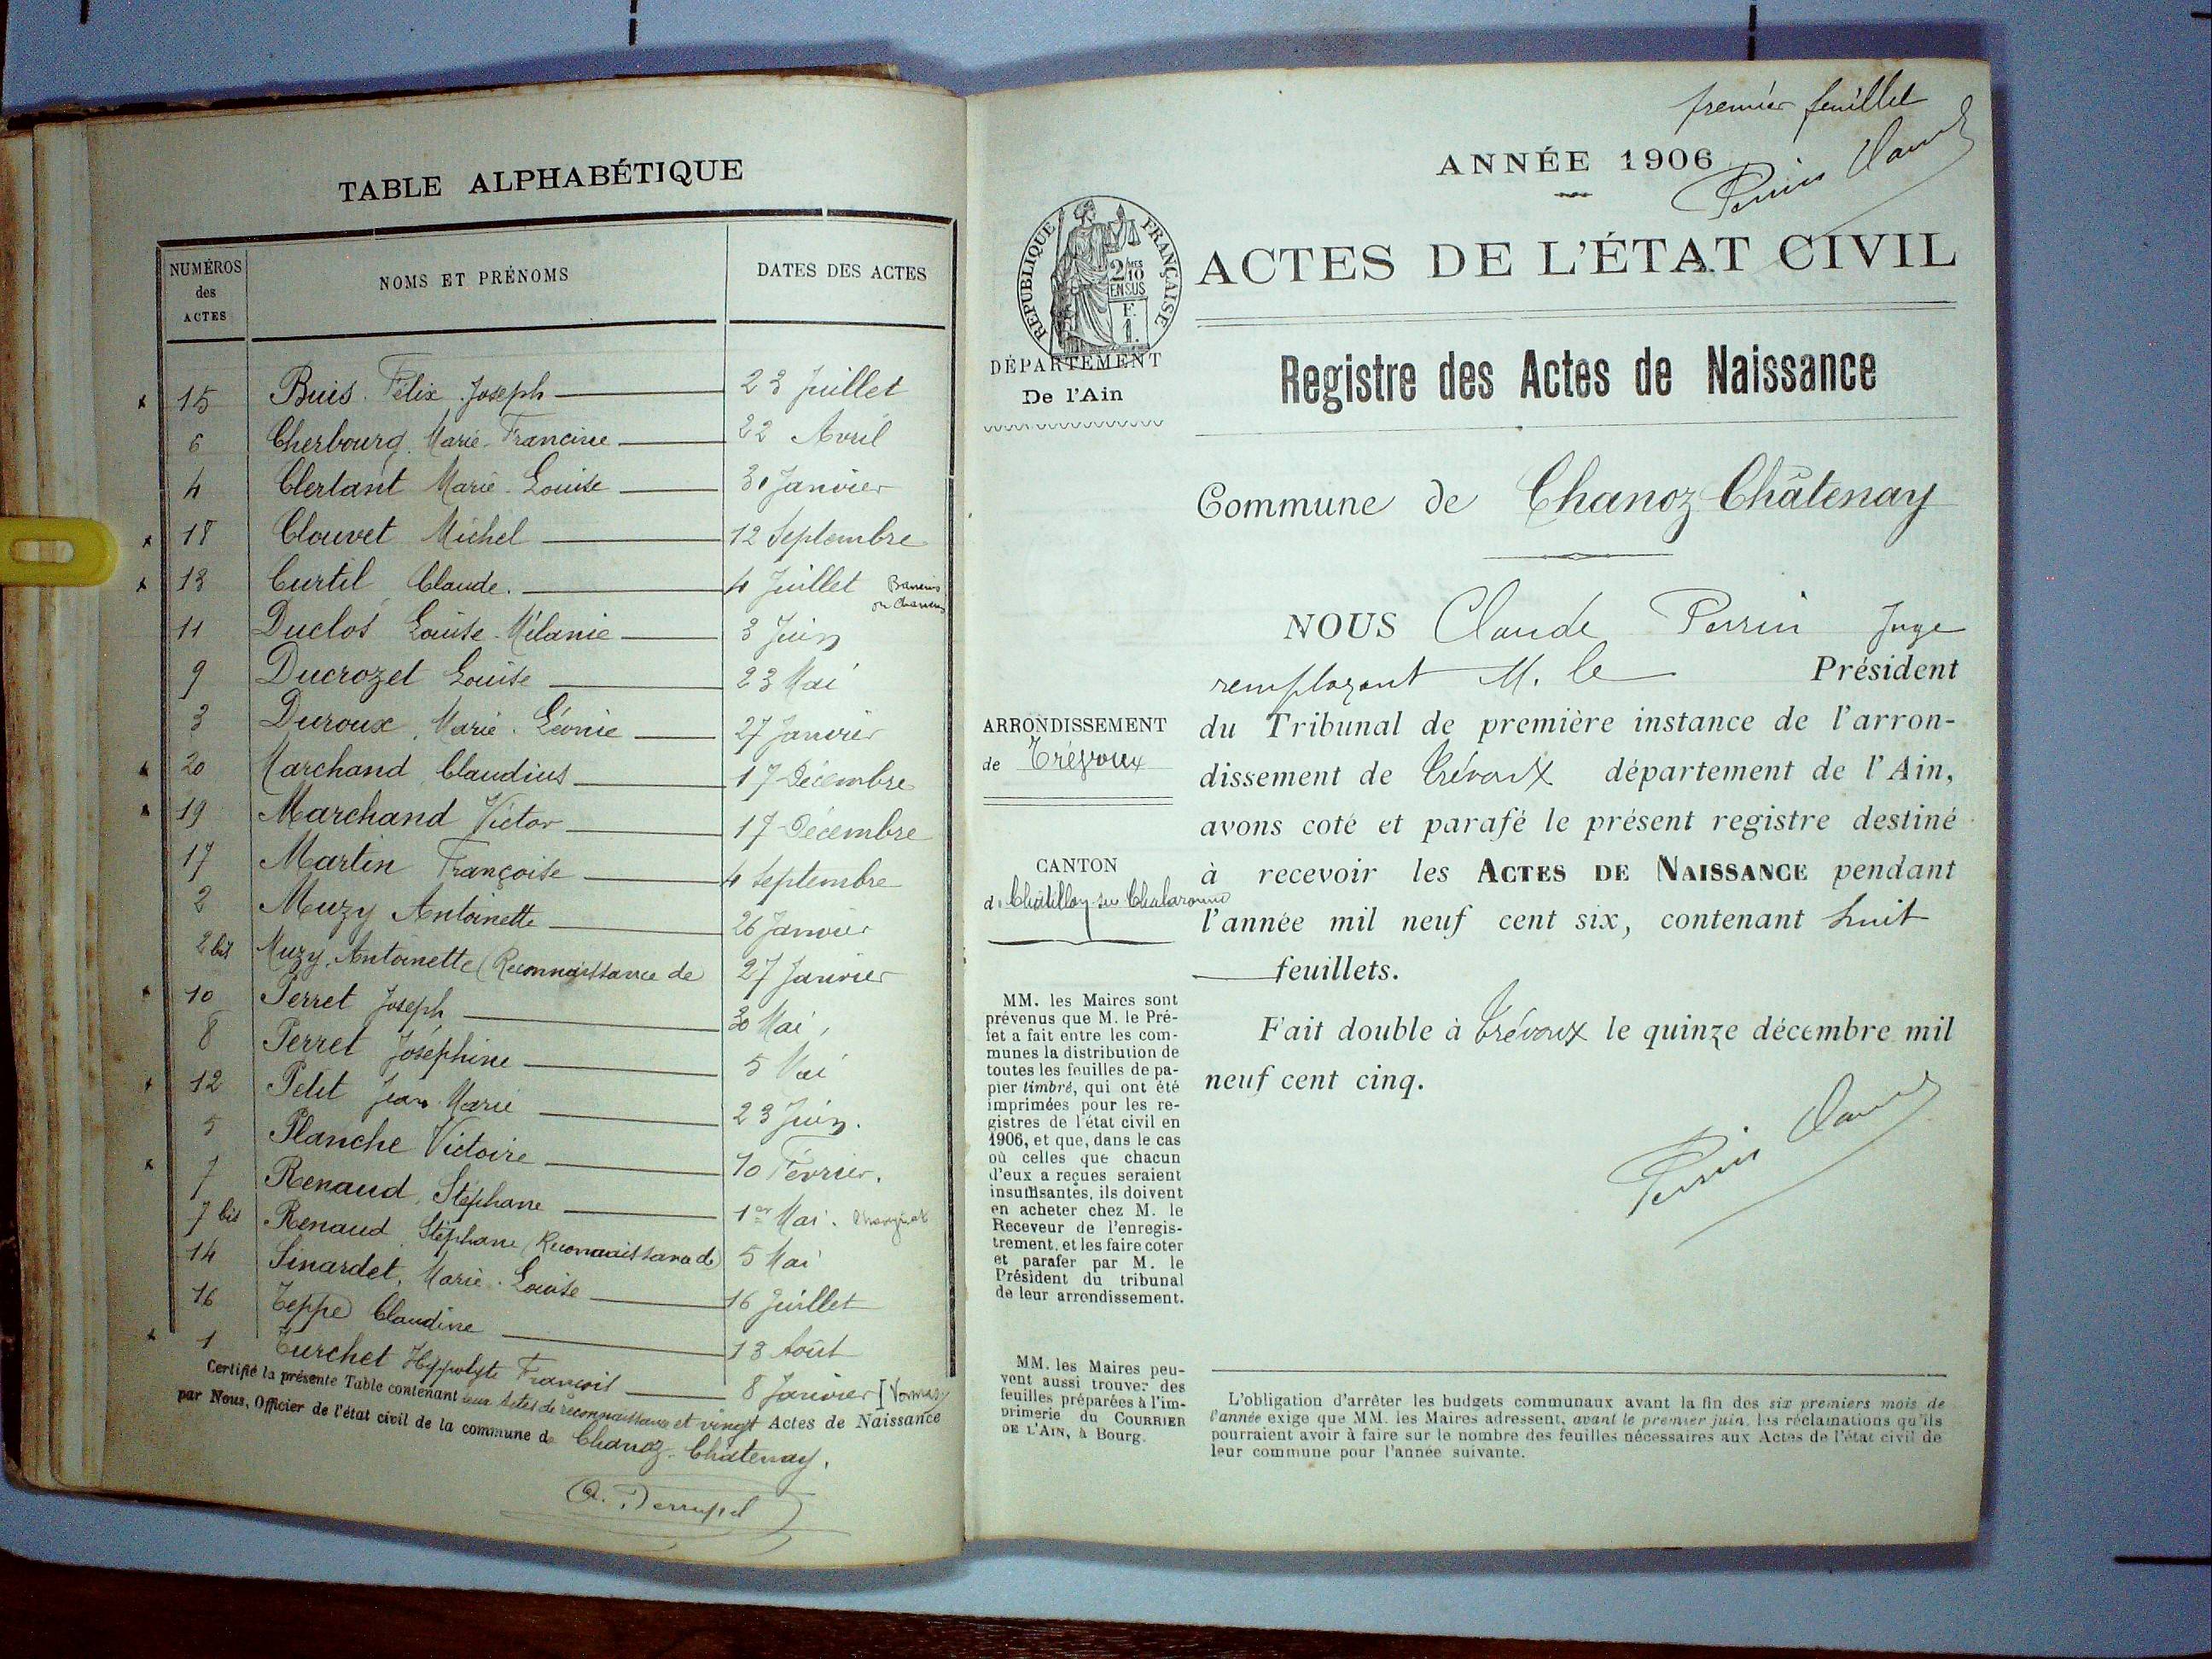 TABLE ALPHABÉTIQUE
NUMÉROS des ACTES NOMS ET PRÉNOMS DATES DES ACTES
x 15 Buis Félix Joseph 23 Juillet
6 Cherbourg Marie Francine 22 Avril
4 Clertant Marie Louise 31 Janvier
x 18 Clouvet Michel 12 Septembre
x 13 Curtil Claude. 4 Juillet
11 Duclos Louise Mélanie 3 Juin
9 Ducrozet Louise 23 Mai
3 Duroux, Marie Léonie 27 Janvier
x 20 Marchand Claudius 17 Décembre
x 19 Marchand Victor 17 Décembre
17 Martin Françoise 4 Septembre
2 Muzy Antoinette 26 Janvier
2 bis Muzy, Antoinette (Reconnaissance de) 27 Janvier
x 10 Perret Joseph 30 Mai,
8 Perret Joséphine 5 Mai
x 12 Petit Jean Marie 23 Juin.
5 Planche Victoire 10 Février.
x 7 Renaud, Stéphane 1er Mai.
7 bis Renaud, Stéphane (Reconnaissance de) 5 Mai
14 Sinardet, Marie Louise 16 Juillet
16 Teppe Claudine 13 Août
x 1 Turchet Hyppolyte François 8 Janvier
Certifié la présente Table contenant deux Actes de reconnaissance et vingt Actes de Naissance
par Nous, Officier de l'état civil de la commune de Chanoz-Châtenay.
premier feuillet
ANNÉE 1906
Perrin Claude
RÉPUBLIQUE FRANÇAISE
2/10 EN SUS
F.
1.
ACTES DE L'ÉTAT CIVIL
DÉPARTEMENT
De l'Ain
Registre des Actes de Naissance
Commune de Chanoz Châtenay
NOUS Claude Perrin Juge
remplaçant M. le Président
ARRONDISSEMENT
de Trévoux
du Tribunal de première instance de l'arron-
dissement de Trévoux département de l'Ain,
avons coté et parafé le présent registre destiné
CANTON
de Châtillon-sur-Chalaronne
à recevoir les ACTES DE NAISSANCE pendant
l'année mil neuf cent six, contenant huit
feuillets.
Fait double à Trévoux le quinze décembre mil
neuf cent cinq.
Perrin Claude
MM. les Maires sont
prévenus que M. le Pré-
fet a fait entre les com-
munes la distribution de
toutes les feuilles de pa-
pier timbré, qui ont été
imprimées pour les re-
gistres de l'état civil en
1906, et que, dans le cas
où celles que chacun
d'eux a reçues seraient
insuffisantes, ils doivent
en acheter chez M. le
Receveur de l'enregis-
trement, et les faire coter
et parafer par M. le
Président du tribunal
de leur arrondissement.
MM. les Maires peu-
vent aussi trouver des
feuilles préparées à l'im-
primerie du COURRIER
DE L'AIN, à Bourg.
L'obligation d'arrêter les budgets communaux avant la fin des six premiers mois de
l'année exige que MM. les Maires adressent, avant le premier juin, les réclamations qu'ils
pourraient avoir à faire sur le nombre des feuilles nécessaires aux Actes de l'état civil de
leur commune pour l'année suivante.